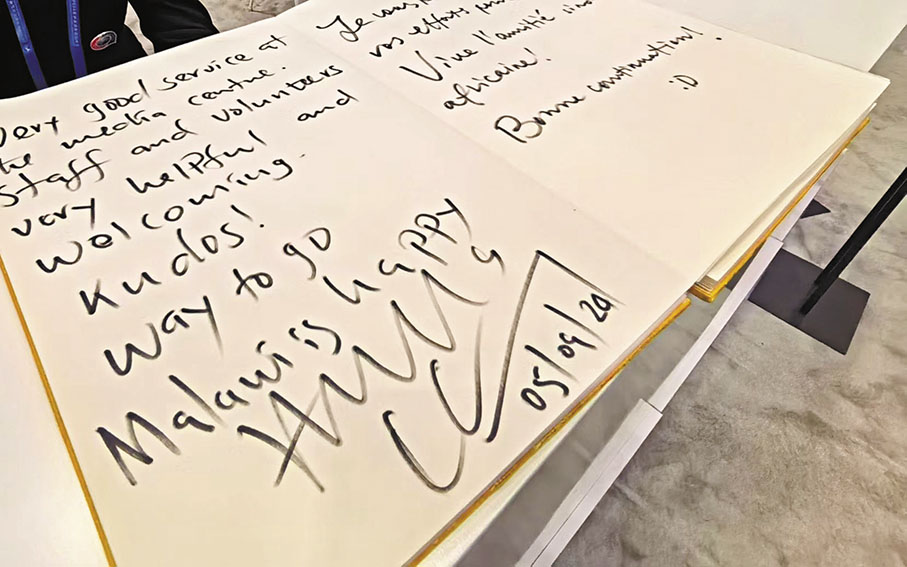 very good service at
the media centre.
Staff and volunteers
very helpful and
welcoming.
Kudos!
Way to go
Malawi is happy
05/09/20
Je
vos efforts
Vive l'amitié sino
africaine!
Bonne continuation!
:D